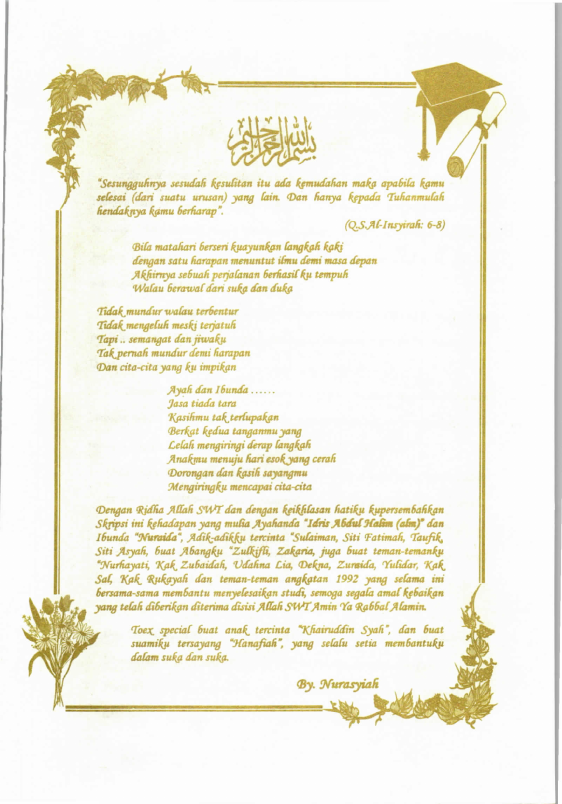 بسم الله الرحمن الرحيم
"Sesungguhnya sesudah kesulitan itu ada kemudahan maka apabila kamu
selesai (dari suatu urusan) yang lain. Dan hanya kepada Tuhanmulah
hendaknya kamu berharap".
(Q.S.Al-Insyirah: 6-8)
Bila matahari berseri kuayunkan langkah kaki
dengan satu harapan menuntut ilmu demi masa depan
Akhirnya sebuah perjalanan berhasil ku tempuh
Walau berawal dari suka dan duka
Tidak mundur walau terbentur
Tidak mengeluh meski terjatuh
Tapi .. semangat dan jiwaku
Tak pernah mundur demi harapan
Dan cita-cita yang ku impikan
Ayah dan Ibunda ......
Jasa tiada tara
Kasihmu tak terlupakan
Berkat kedua tanganmu yang
Lelah mengiringi derap langkah
Anakmu menuju hari esok yang cerah
Dorongan dan kasih sayangmu
Mengiringku mencapai cita-cita
Dengan Ridha Allah SWT dan dengan keikhlasan hatiku kupersembahkan
Skripsi ini kehadapan yang mulia Ayahanda "Idris Abdul Halim (alm)" dan
Ibunda "Nuraida", Adik-adikku tercinta "Sulaiman, Siti Fatimah, Taufik,
Siti Asyah, buat Abangku "Zulkifli, Zakaria, juga buat teman-temanku
"Nurhayati, Kak Zubaidah, Udahna Lia, Dekna, Zuraida, Yulidar, Kak
Sal, Kak Rukayah dan teman-teman angkatan 1992 yang selama ini
bersama-sama membantu menyelesaikan studi, semoga segala amal kebaikan
yang telah diberikan diterima disisi Allah SWT Amin Ya Rabbal Alamin.
Toex special buat anak tercinta "Khairuddin Syah", dan buat
suamiku tersayang "Hanafiah", yang selalu setia membantuku
dalam suka dan suka.
By. Nurasyiah